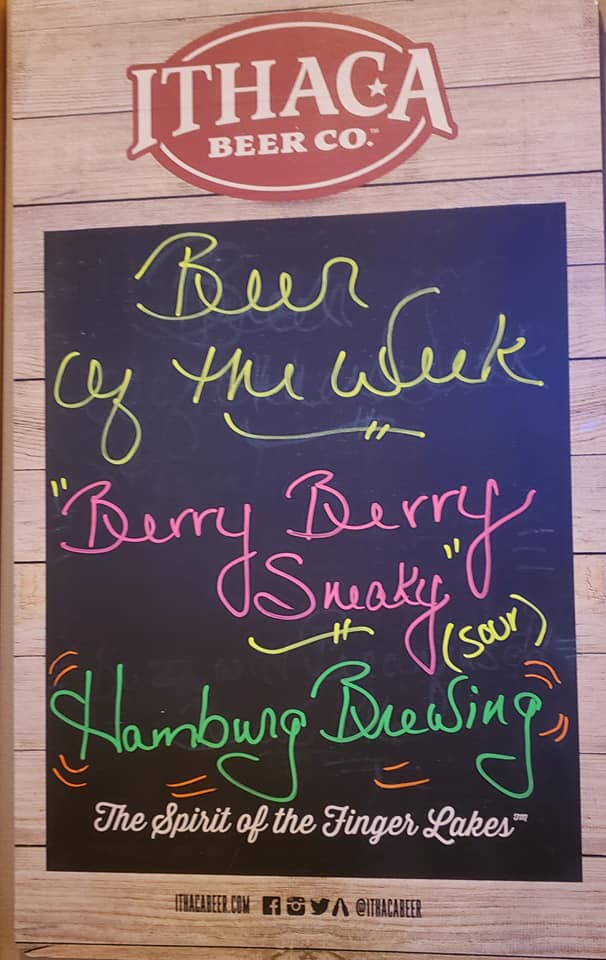 ITHACA
BEER CO.™
Beer
of the Week
"Berry Berry
Sneaky"
(sour)
Hamburg Brewing
The Spirit of the Finger Lakes℠
ITHACABEER.COM @ITHACABEER